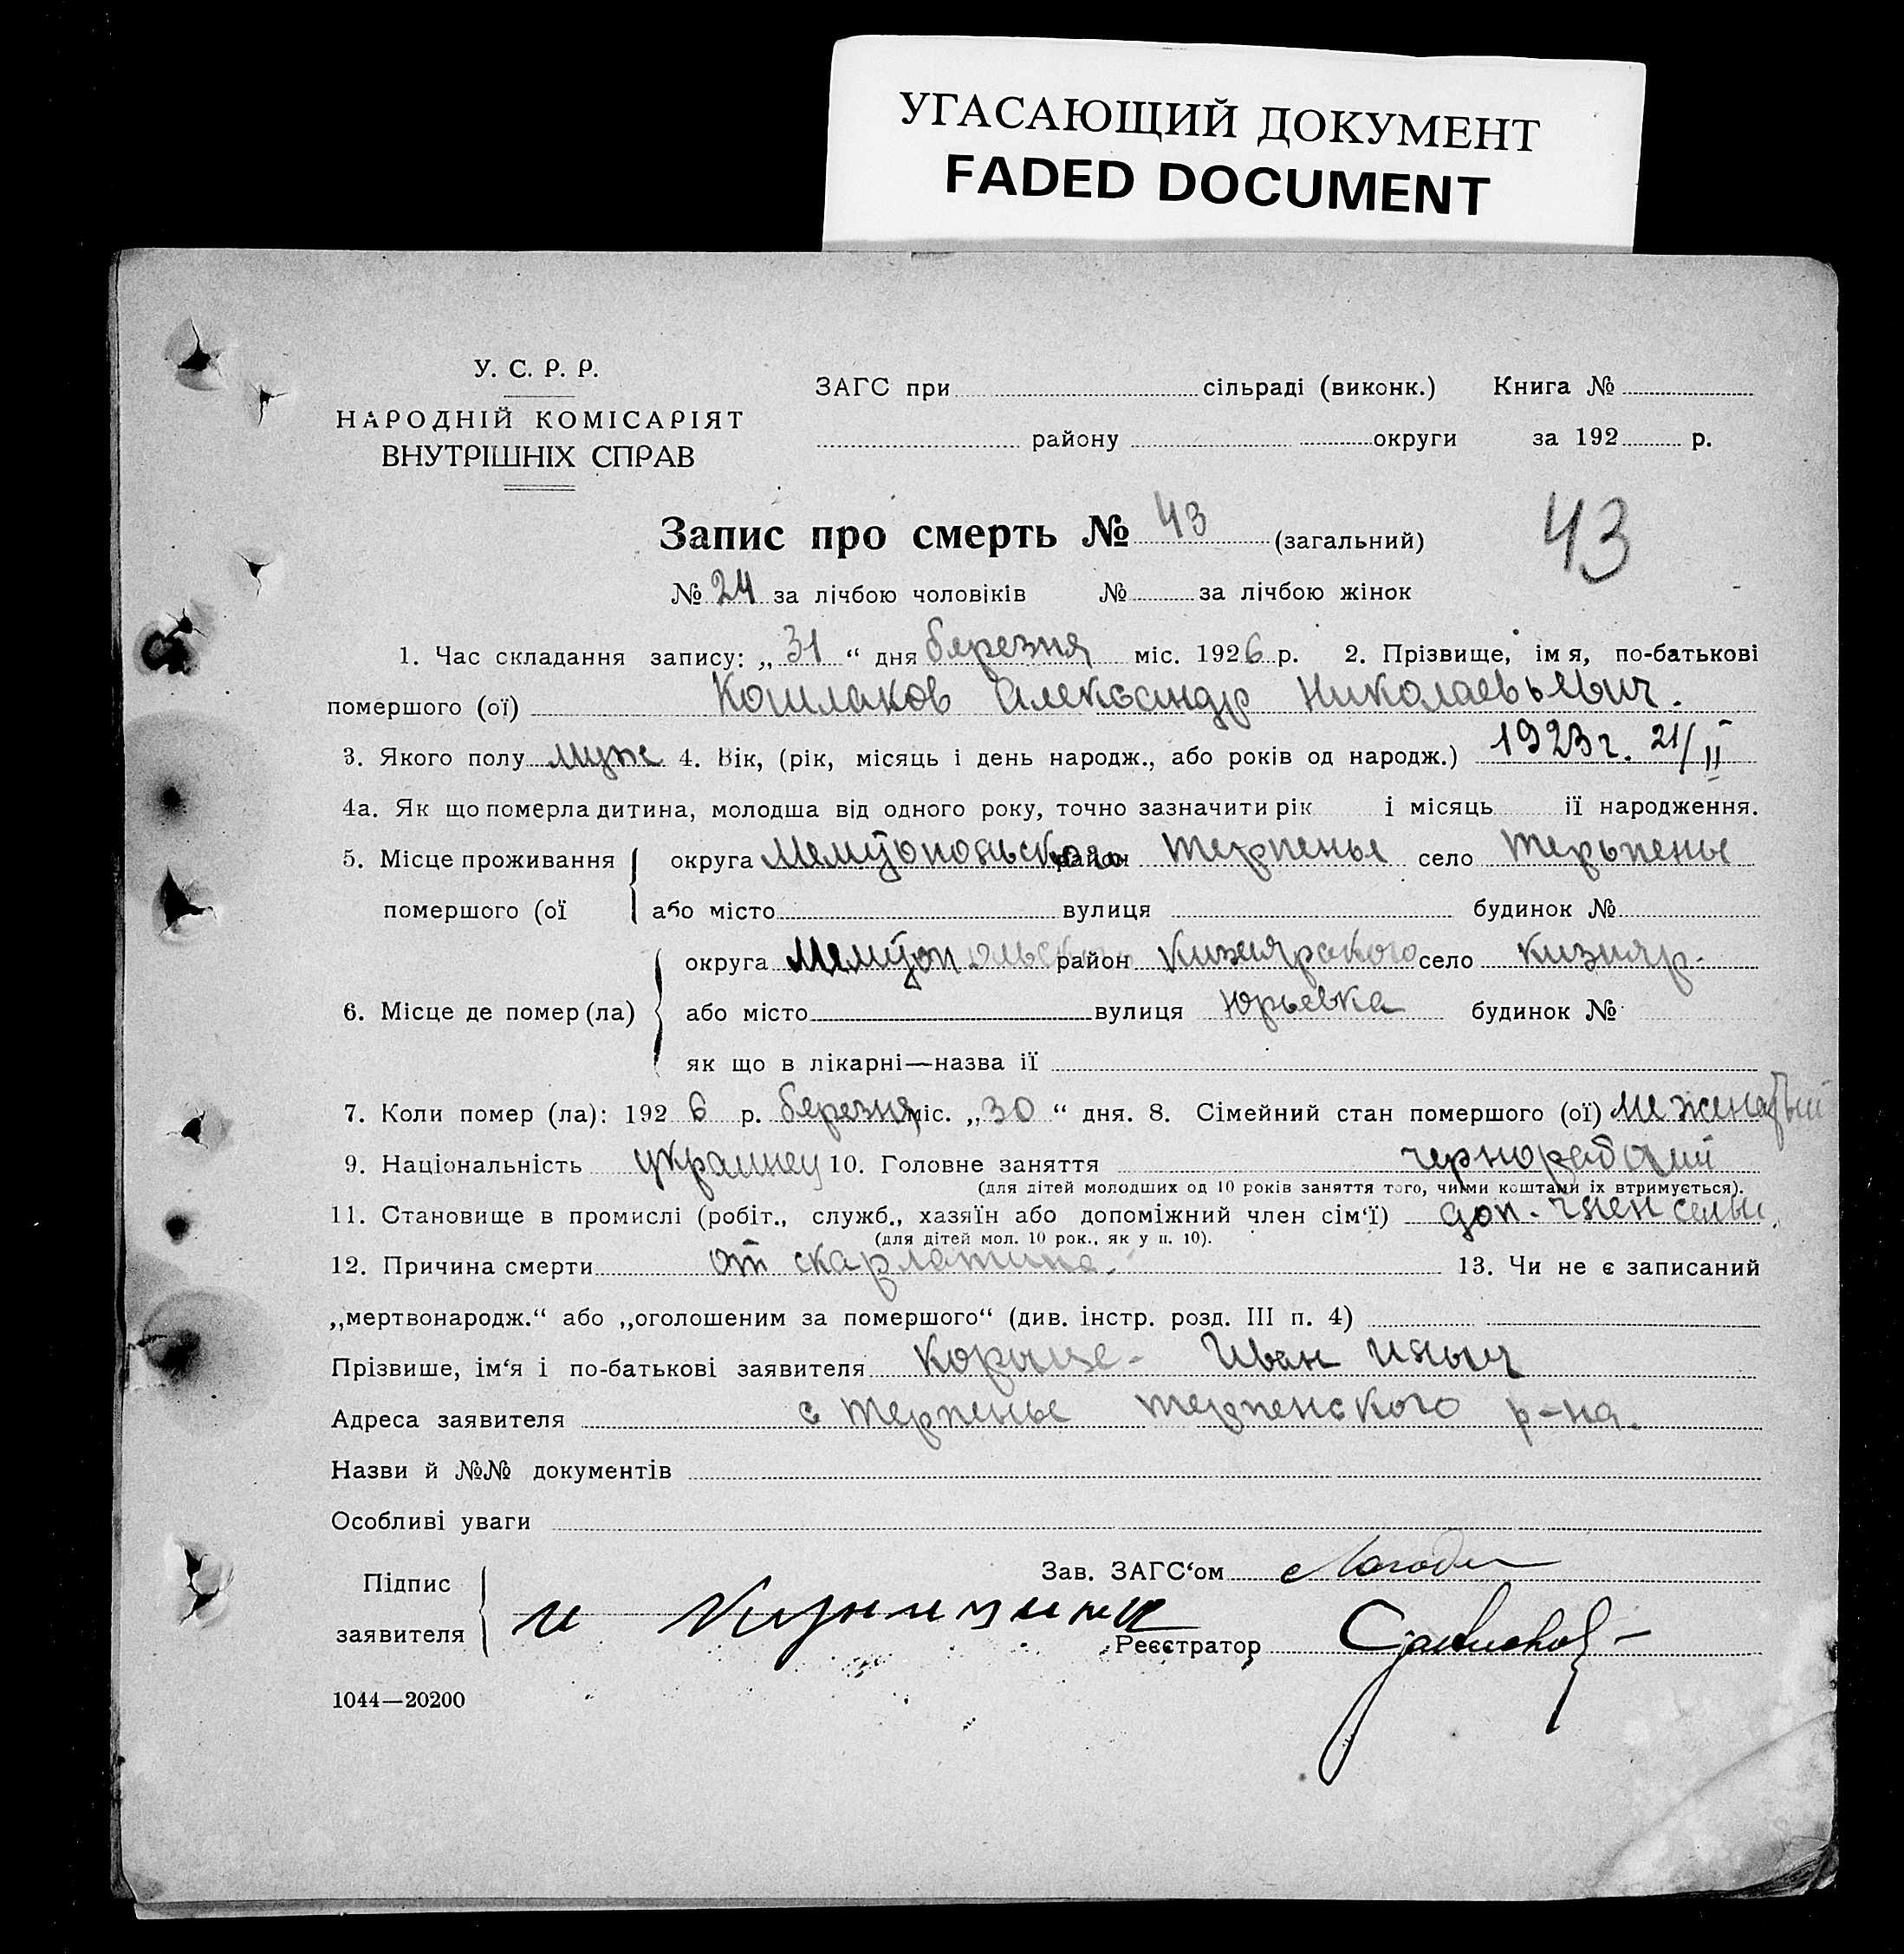 УГАСАЮЩИЙ ДОКУМЕНТ
FADED DOCUMENT
У. С. Р. Р.
НАРОДНІЙ КОМІСАРІЯТ
ВНУТРІШНІХ СПРАВ
ЗАГС при сільраді (виконк.) Книга №
району округи за 192 р.
Запис про смерть № 43 (загальний) 43
№ 24 за лічбою чоловіків № за лічбою жінок
1. Час складання запису: „31“ дня березня міс. 1926 р. 2. Прізвище, імя, по-батькові
помершого (ої) Кошлаков Александр Николаевьевич.
3. Якого полу муж 4. Вік, (рік, місяць і день народж., або років од народж.) 1923 г. 21/II
4а. Як що померла дитина, молодша від одного року, точно зазначити рік і місяць ії народження.
5. Місце проживання округа район Терпенье село Терьпенье
помершого (ої або місто вулиця будинок №
округа район Кизиярского село Кизияр.
6. Місце де помер (ла) або місто вулиця Юрьевка будинок №
як що в лікарні—назва ії
7. Коли помер (ла): 1926 р. березня міс. „30“ дня. 8. Сімейний стан помершого (ої) не женатый
9. Національність украинец 10. Головне заняття чернорабочий
(для дітей молодших од 10 років заняття того, чиїми коштами іх втримується).
11. Становище в промислі (робіт., служб., хазяїн або допоміжний член сім‘ї) доп. член семьи.
(для дітей мол. 10 рок., як у п. 10).
12. Причина смерти от скарлатина. 13. Чи не є записаний
„мертвонародж.“ або „оголошеним за помершого“ (див. інстр. розд. III п. 4)
Прізвише, ім‘я і по-батькові заявителя Иван Ильич
Адреса заявителя с Терпенье терпенского р-на.
Назви й №№ документів
Особливі уваги
Підпис Зав. ЗАГС‘ом
заявителя Реєстратор
1044—20200